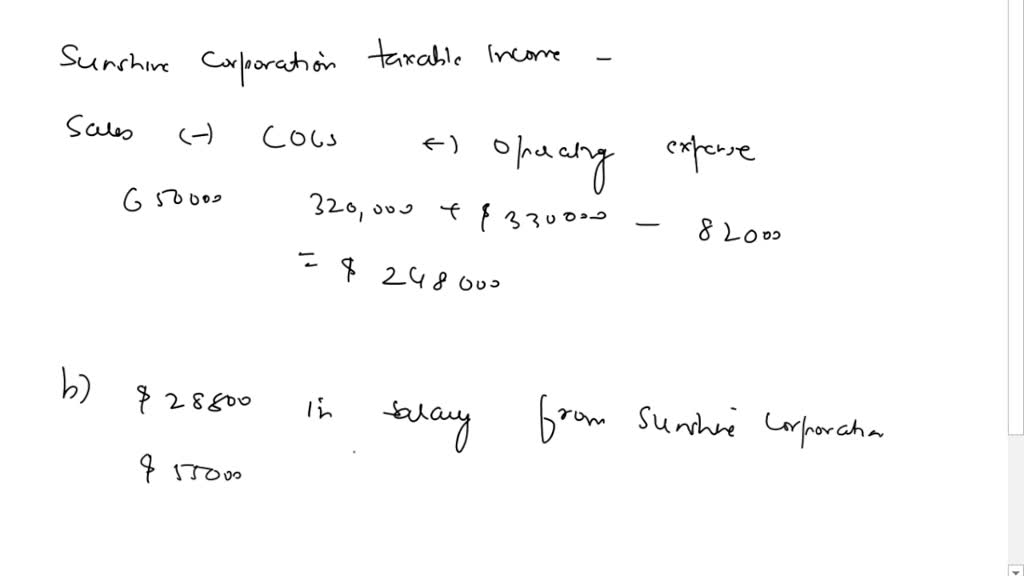 Sunshine Corporation taxable Income –
Sales (-) COGS (-) Operating expense
650000 320,000 + $ 330000 – 82000
= $ 248000
b) $ 28800 in salary from Sunshine Corporation
$ 55000